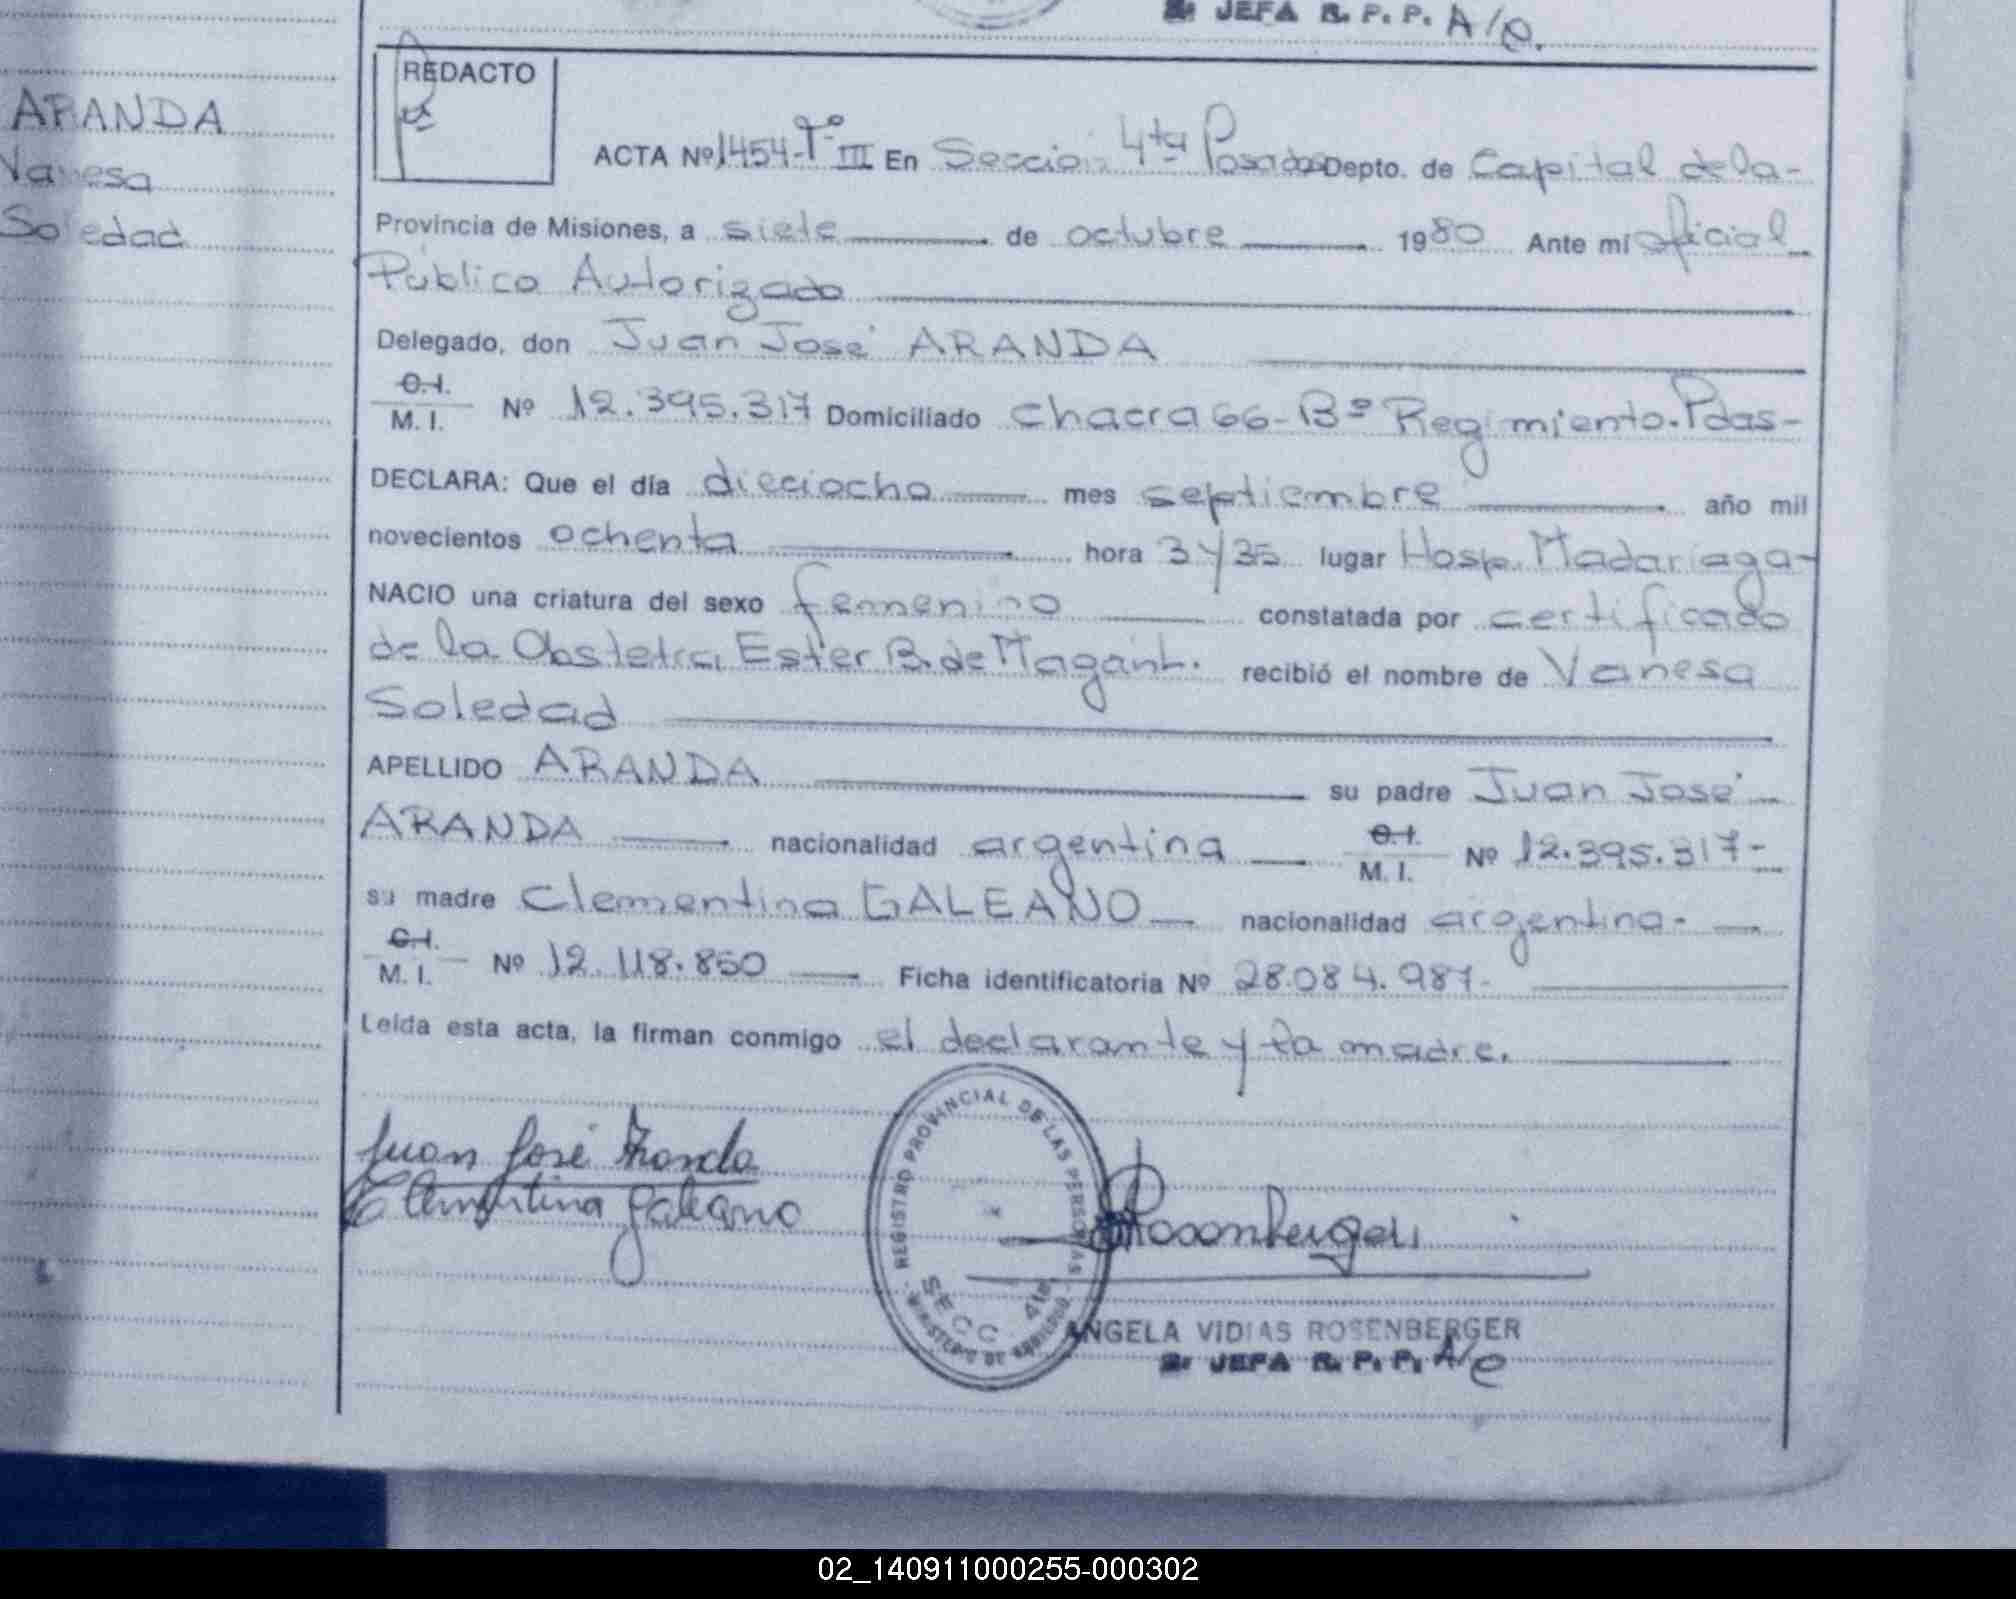 2: JEFA R. P. P. A/c.
REDACTO
ARANDA
Vanesa
Soledad
ACTA Nº 1454-Tº III En Seccion 4ta Posadas Depto. de Capital de la-
Provincia de Misiones, a siete de octubre 1980 Ante mi oficial
Público Autorizado
Delegado, don Juan José ARANDA
C.I. M. I. Nº 12.395.317 Domiciliado chacra 66-Bº Regimiento.Pdas-
DECLARA: Que el día dieciocho mes septiembre año mil
novecientos ochenta hora 3 y 35 lugar Hosp. Madariaga-
NACIO una criatura del sexo femenino constatada por certificado
de la Obstetra Ester B. de recibió el nombre de Vanesa
Soledad
APELLIDO ARANDA su padre Juan José
ARANDA nacionalidad argentina C.I. M. I. Nº 12.395.317-
su madre Clementina GALEANO nacionalidad argentina-
C.I. M. I. Nº 12.118.850 Ficha identificatoria Nº 28.084.987-
Leída esta acta, la firman conmigo el declarante y la madre.
Juan José Aranda
Clementina Galeano
REGISTRO PROVINCIAL DE LAS PERSONAS
SECC. 4ta
MINISTERIO DE GOBIERNO
Rosenberger
ANGELA VIDIAS ROSENBERGER
2: JEFA R. P. P. A/c
02_140911000255-000302